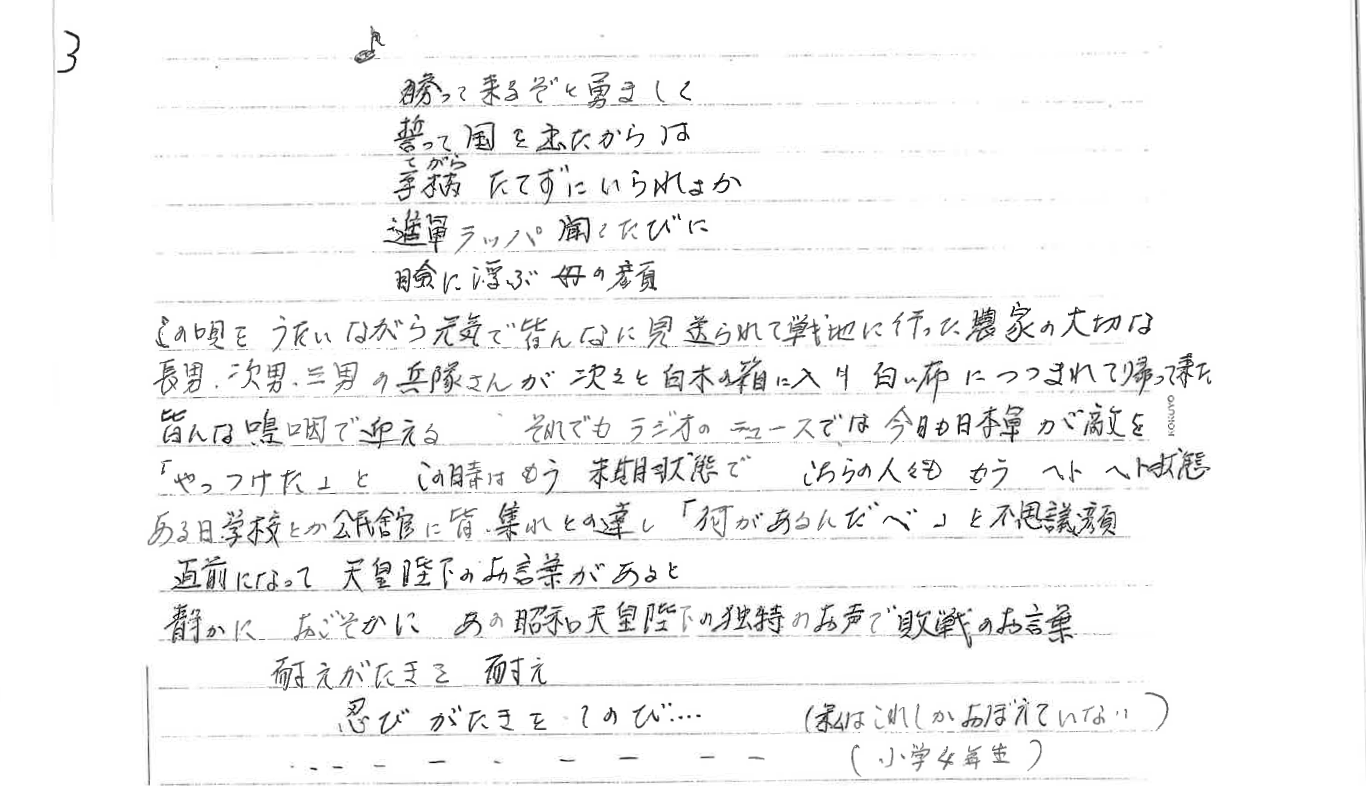 3
♪
勝って来るぞと勇ましく
誓って国を出たからは
てがら
手柄 たてずにいられよか
進軍ラッパ 聞くたびに
瞼に浮ぶ 母の顔
この唄を うたいながら元気で皆んなに見送られて戦地に行った農家の大切な
長男、次男、三男の兵隊さんが 次々と白木の箱に入り 白い布につつまれて帰って来た
皆んな嗚咽で迎える それでもラジオのニュースでは今日も日本軍が敵を
「やっつけた」と この時はもう 末期状態で こちらの人々も もう ヘトヘト状態
ある日学校とか公民舘に皆、集れとの達し「何があるんだべ」と不思議顔
直前になって 天皇陛下のお言葉があると
静かに おごそかに あの昭和天皇陛下の独特のお声で敗戦のお言葉
耐えがたきを 耐え
忍びがたきを しのび…. (私はこれしかおぼえていない)
(小学4年生)
KOKUYO